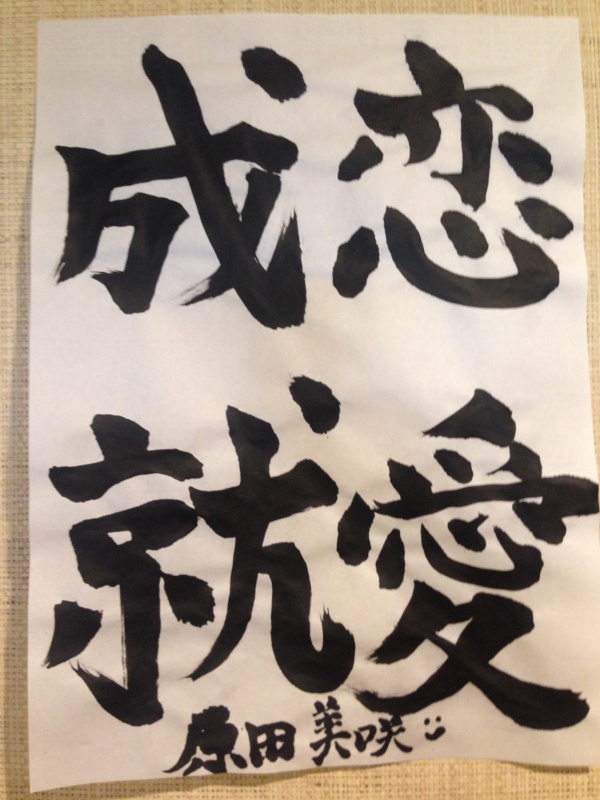 恋愛
成就
原田美咲